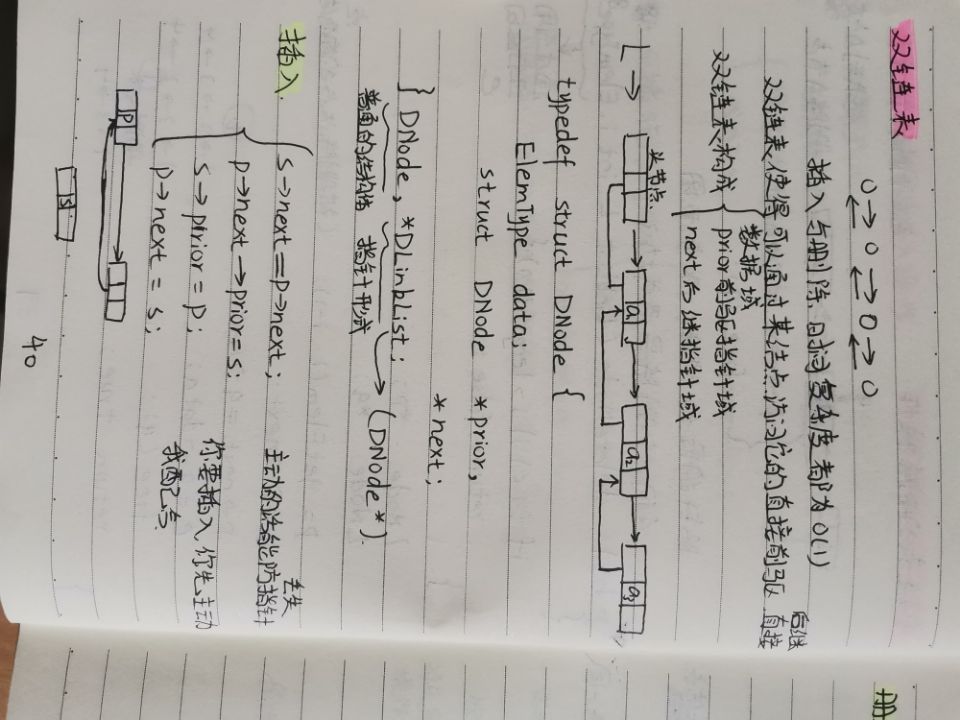 双链表
O → O → O → O
插入与删除 时间复杂度都为O(1)
双链表使得可以通过某结点访问它的直接前驱 直接后继
双链表构成 { 数据域
prior 前驱指针域
next 后继指针域
头节点
L → a₁ a₂ a₃
typedef struct DNode {
ElemType data;
struct DNode *prior,
*next;
} DNode, *DLinkList; → (DNode*).
普通的结构体 指针形式
插入.
s→next=p→next; 主动的话能防指针丢失
p→next→prior=s;
s→prior=p; 你要插入你先主动
p→next=s; 我配合.
P
S
40
册